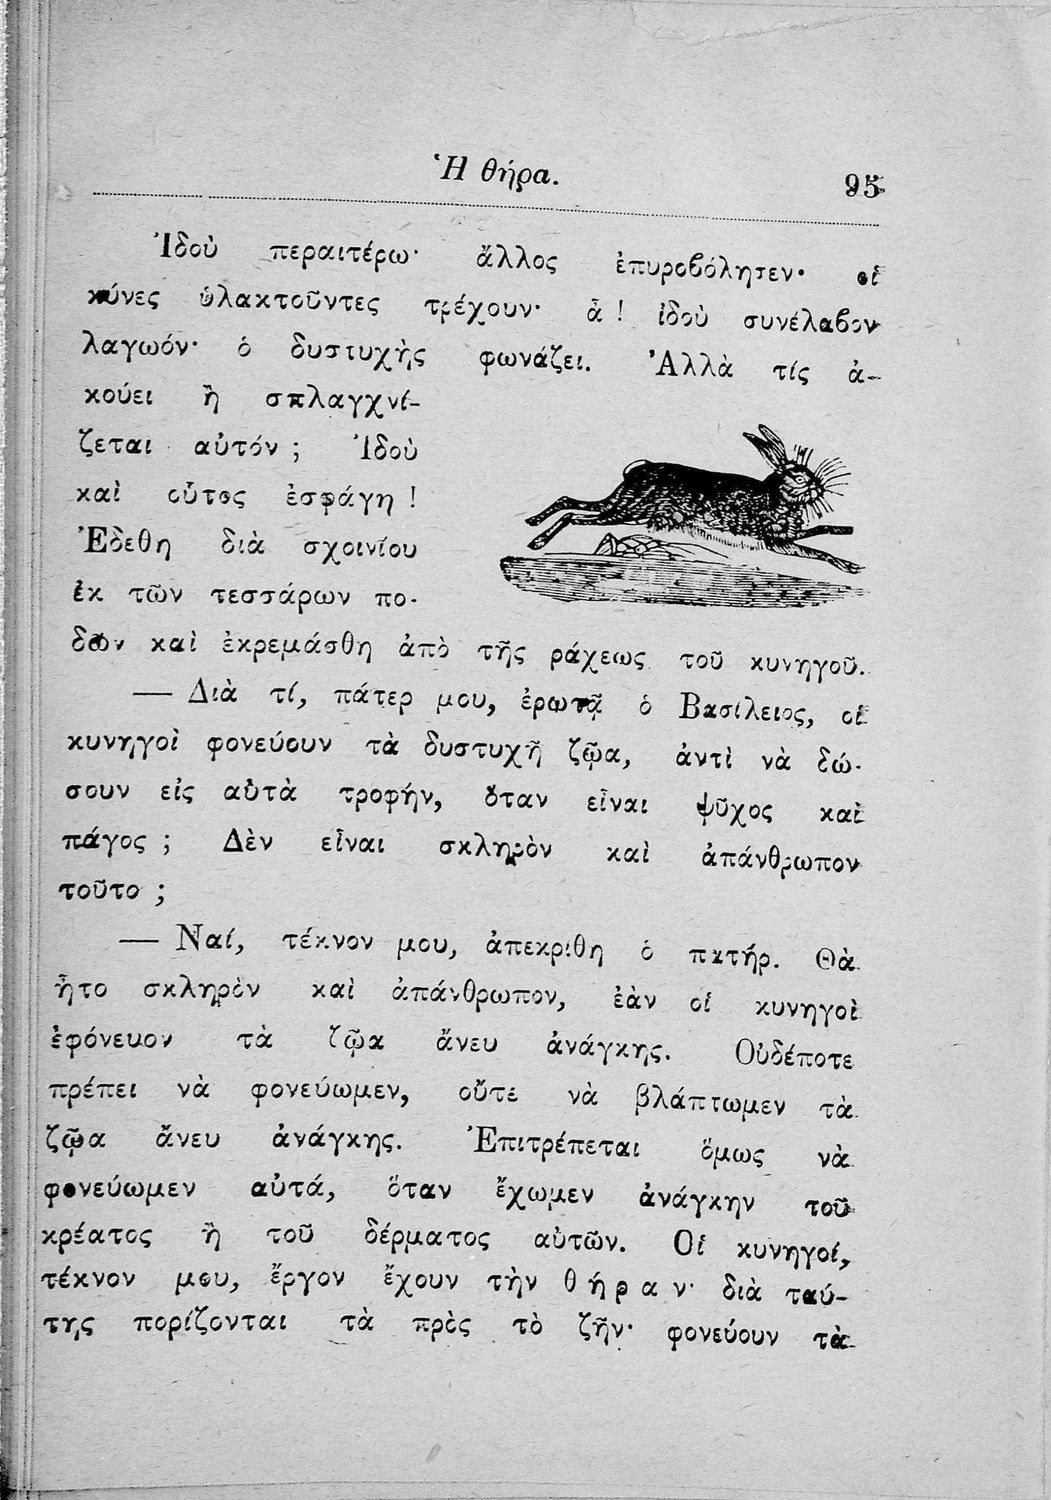 Ἡ θήρα.
95
Ἰδοὺ περαιτέρω· ἄλλος ἐπυροβόλησεν· οἱ
κύνες ὑλακτοῦντες τρέχουν· ἆ! ἰδοὺ συνέλαβον
λαγωόν· ὁ δυστυχὴς φωνάζει. Ἀλλὰ τίς ἀ-
κούει ἢ σπλαγχνί-
ζεται αὐτόν; Ἰδοὺ
καὶ οὗτος ἐσφάγη!
Ἐδέθη διὰ σχοινίου
ἐκ τῶν τεσσάρων πο-
δῶν καὶ ἐκρεμάσθη ἀπὸ τῆς ράχεως τοῦ κυνηγοῦ.
— Διὰ τί, πάτερ μου, ἐρωτᾷ ὁ Βασίλειος, οἱ
κυνηγοὶ φονεύουν τὰ δυστυχῆ ζῷα, ἀντὶ νὰ δώ-
σουν εἰς αὐτὰ τροφήν, ὅταν εἶναι ψῦχος καὶ
πάγος; Δὲν εἶναι σκληρὸν καὶ ἀπάνθρωπον
τοῦτο;
— Ναί, τέκνον μου, ἀπεκρίθη ὁ πατήρ. Θὰ
ἦτο σκληρὸν καὶ ἀπάνθρωπον, ἐὰν οἱ κυνηγοὶ
ἐφόνευον τὰ ζῷα ἄνευ ἀνάγκης. Οὐδέποτε
πρέπει νὰ φονεύωμεν, οὔτε νὰ βλάπτωμεν τὰ
ζῷα ἄνευ ἀνάγκης. Ἐπιτρέπεται ὅμως νὰ
φονεύωμεν αὐτά, ὅταν ἔχωμεν ἀνάγκην τοῦ
κρέατος ἢ τοῦ δέρματος αὐτῶν. Οἱ κυνηγοί,
τέκνον μου, ἔργον ἔχουν τὴν θήραν· διὰ ταύ-
της πορίζονται τὰ πρὸς τὸ ζῆν· φονεύουν τὰ